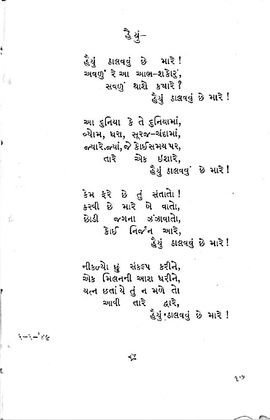 હૈયું–
હૈયું ઠાલવવું છે મારે!
અવળું રે આ આભ-શકોરું,
સવળું થાશે ક્યારે?
હૈયું ઠાલવવું છે મારે!
આ દુનિયા કે તે દુનિયામાં,
વ્યોમ, ધરા, સૂરજ-ચંદામાં,
જ્યારે-જ્યાં, જે કોઈ સમય પર,
તારે એક ઇશારે,
હૈયું ઠાલવવું છે મારે!
કેમ ફરે છે તું સંતાતો!
કરવી છે મારે બે વાતો,
છોડી જગના ઝંઝાવાતો,
કોઈ નિર્જન આરે,
હૈયું ઠાલવવું છે મારે!
નીકળ્યો છું સંકલ્પ કરીને,
એક મિલનની આશ ધરીને,
યત્ન છતાં યે તું ન મળે તો
આવી તારે દ્વારે,
હૈયું ઠાલવવું છે મારે!